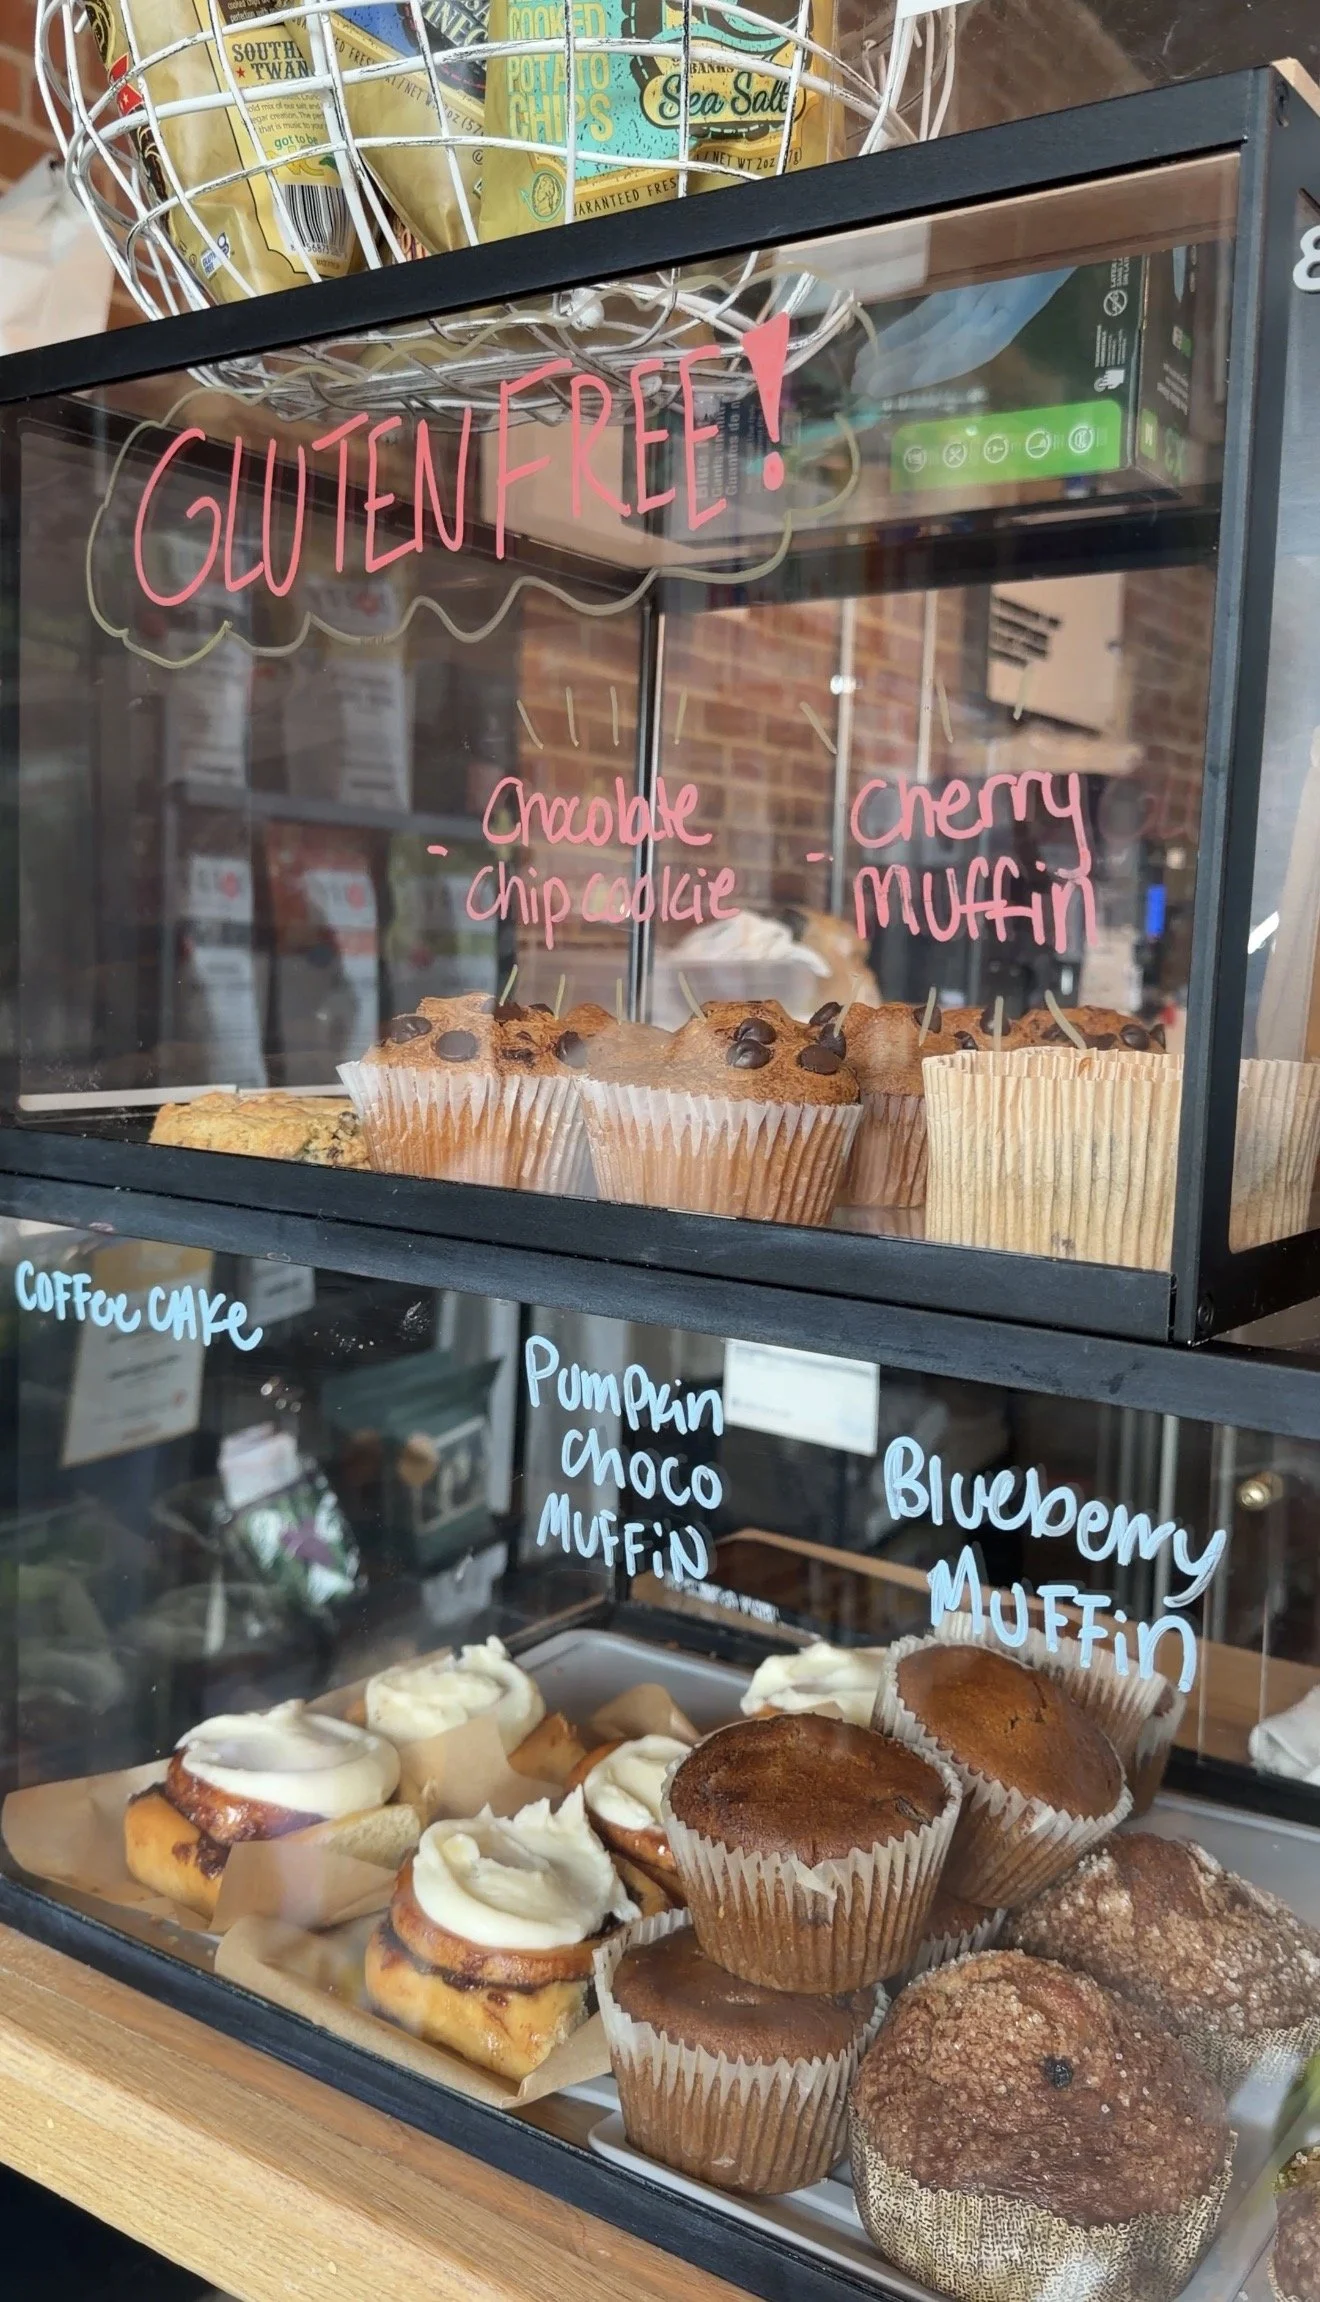 SOUTH
TWAN
got to be
COOKED
POTATO
CHIPS
Sea Salt
NET WT 2oz
GUARANTEED FRES
GLUTEN FREE!
- Chocolate
Chip cookie
- Cherry
Muffin
COFFee CAKe
PUMPkin
CHOCO
MUFFiN
Blueberry
MUFFin